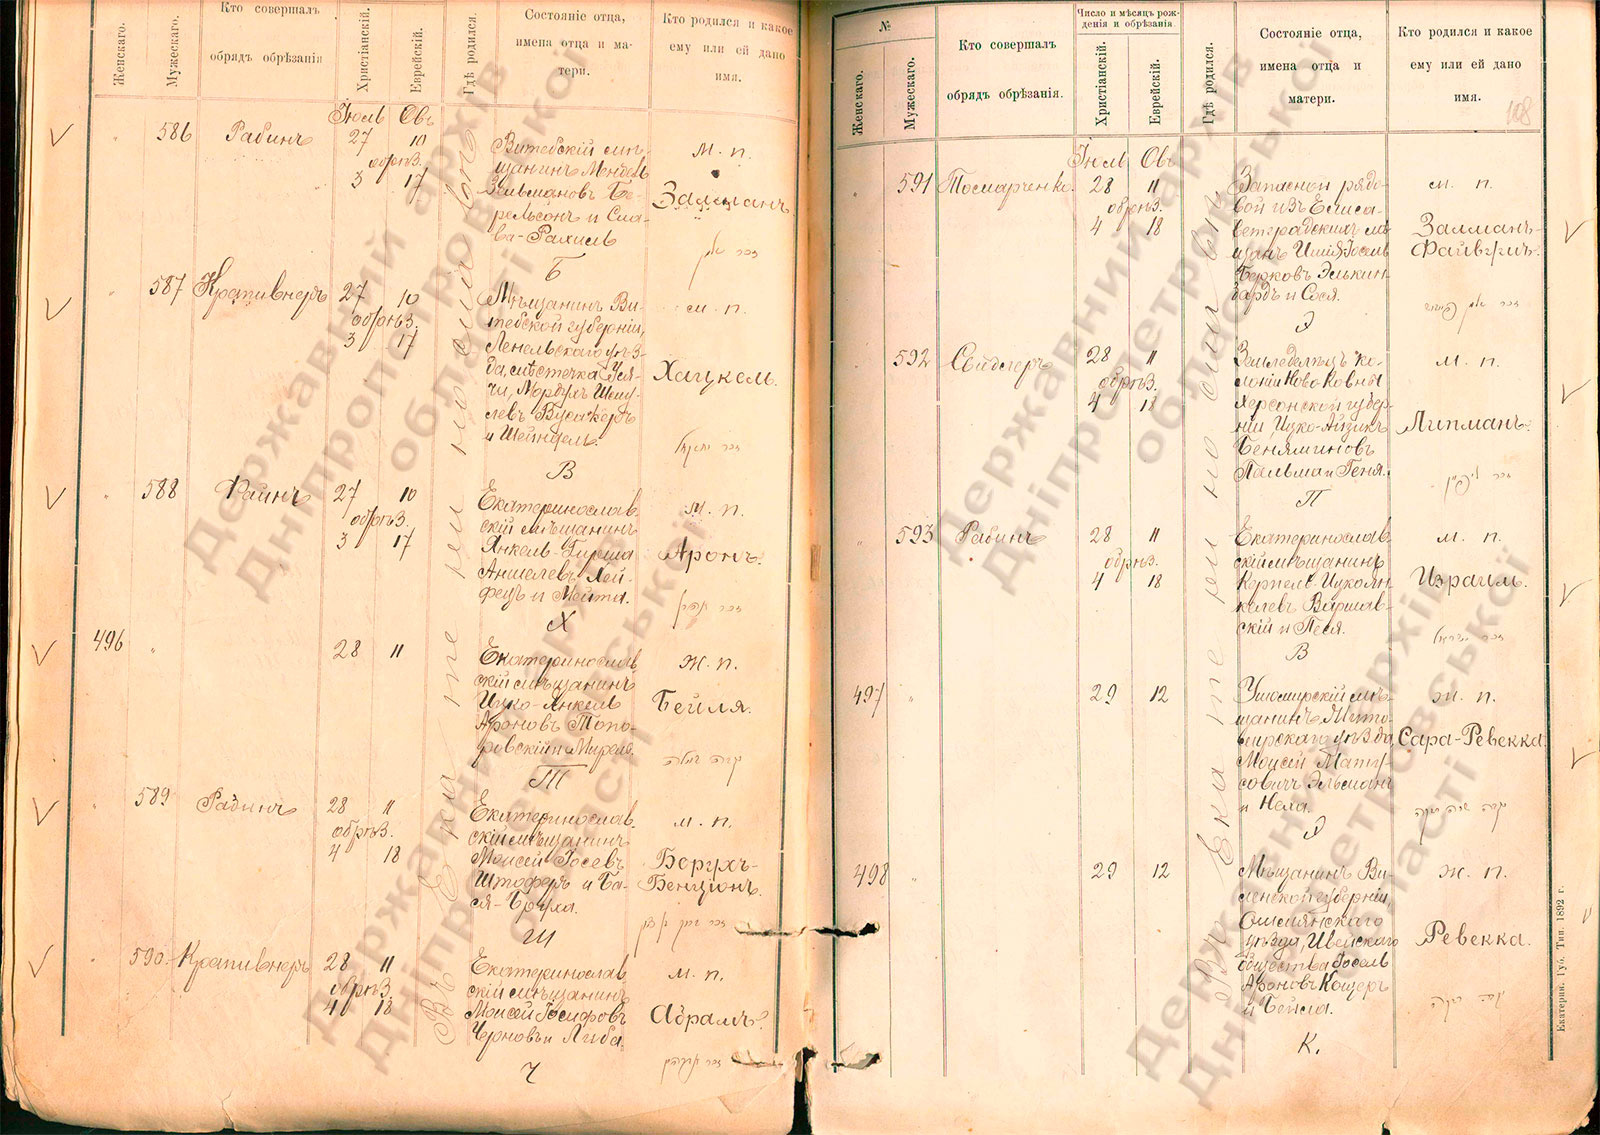 Женскаго.
Мужескаго.
Кто совершалъ
обрядъ обрѣзанія
Христіанскій.
Еврейскій.
Гдѣ родился.
Состояніе отца,
имена отца и ма-
тери.
Кто родился и какое
ему или ей дано
имя.
Іюль Овъ
586 Рабинъ 27 10
обрѣз.
3 17
Витебскій мѣ-
щанинъ Мендель
Зельмановъ Бе-
рельсонъ и Сла-
ва-Рахиль
Б
м. п.
Залманъ
587 Крапивнеръ 27 10
обрѣз.
3 17
Мѣщанинъ Ви-
тебской губерніи,
Лепельскаго уѣз-
да, мѣстечка Уся-
чи, Мордухъ
и Шейндель.
В
м. п.
Хацкель.
588 Файнъ 27 10
обрѣз.
3 17
Екатеринослав.
скій мѣщанинъ
Янкель-Гирша
Аншелевъ Хей-
фецъ и Мейта.
Х
м. п.
Аронъ.
496 28 11
Екатеринослав.
скій мѣщанинъ
Ицко-Янкель
Ароновъ Топо-
ровскій и Мирель.
Т
ж. п.
Бейля.
589 Рабинъ 28 11
обрѣз.
4 18
Екатеринослав.
скій мѣщанинъ
Моисей Іосевъ
Штоферъ и Ба-
ся-Бруха.
Ш
м. п.
Берухъ-
Бенціонъ.
590. Крапивнеръ 28 11
обрѣз.
4 18
Екатеринослав
скій мѣщанинъ
Моисей Іосифовъ
Черновъ и Либа.
Ч
м. п.
Абрамъ.
Въ Екатеринославѣ
№
Женскаго.
Мужескаго.
Кто совершалъ
обрядъ обрѣзанія.
Число и мѣсяцъ рож-
денія и обрѣзанія.
Христіанскій.
Еврейскій.
Гдѣ родился.
Состояніе отца,
имена отца и
матери.
Кто родился и какое
ему или ей дано
имя.
108
Іюль Овъ
591 28 11
обрѣз.
4 18
Запасной рядо-
вой изъ Елиса-
ветградскихъ мѣ-
щанъ Іосель
Берковъ Элькин-
бардъ и Сося.
Э
м. п.
Залманъ-
Файвишъ.
592 Сейдлеръ 28 11
обрѣз.
4 18
Земледѣлецъ ко-
лоніи Ново Ковны
Херсонской губер-
ніи, Ицко-Айзикъ
Беняминовъ
Пальма и Геня.
П
м. п.
Липманъ.
593 Рабинъ 28 11
обрѣз.
4 18
Екатеринослав.
скій мѣщанинъ
Копель Ицкоян-
келевъ Варшав-
скій и Песя.
В
м. п.
Израиль.
497 29 12
Ушомирскій мѣ-
щанинъ, Жито-
мирскаго уѣзда,
Моисей Матус-
овичъ Эльманъ
и Нела.
Э
ж. п.
Сара-Ревекка.
498 29 12
Мѣщанинъ Ви-
ленской губерніи,
Ошмянскаго
уѣзда, Ивейскаго
общества Іосель
Ароновъ Кощеръ
и Бейла.
К.
ж. п.
Ревекка.
Въ Екатеринославѣ
Екатерин. Губ. Тип. 1892 г.
Державний архів
Дніпропетровської
області